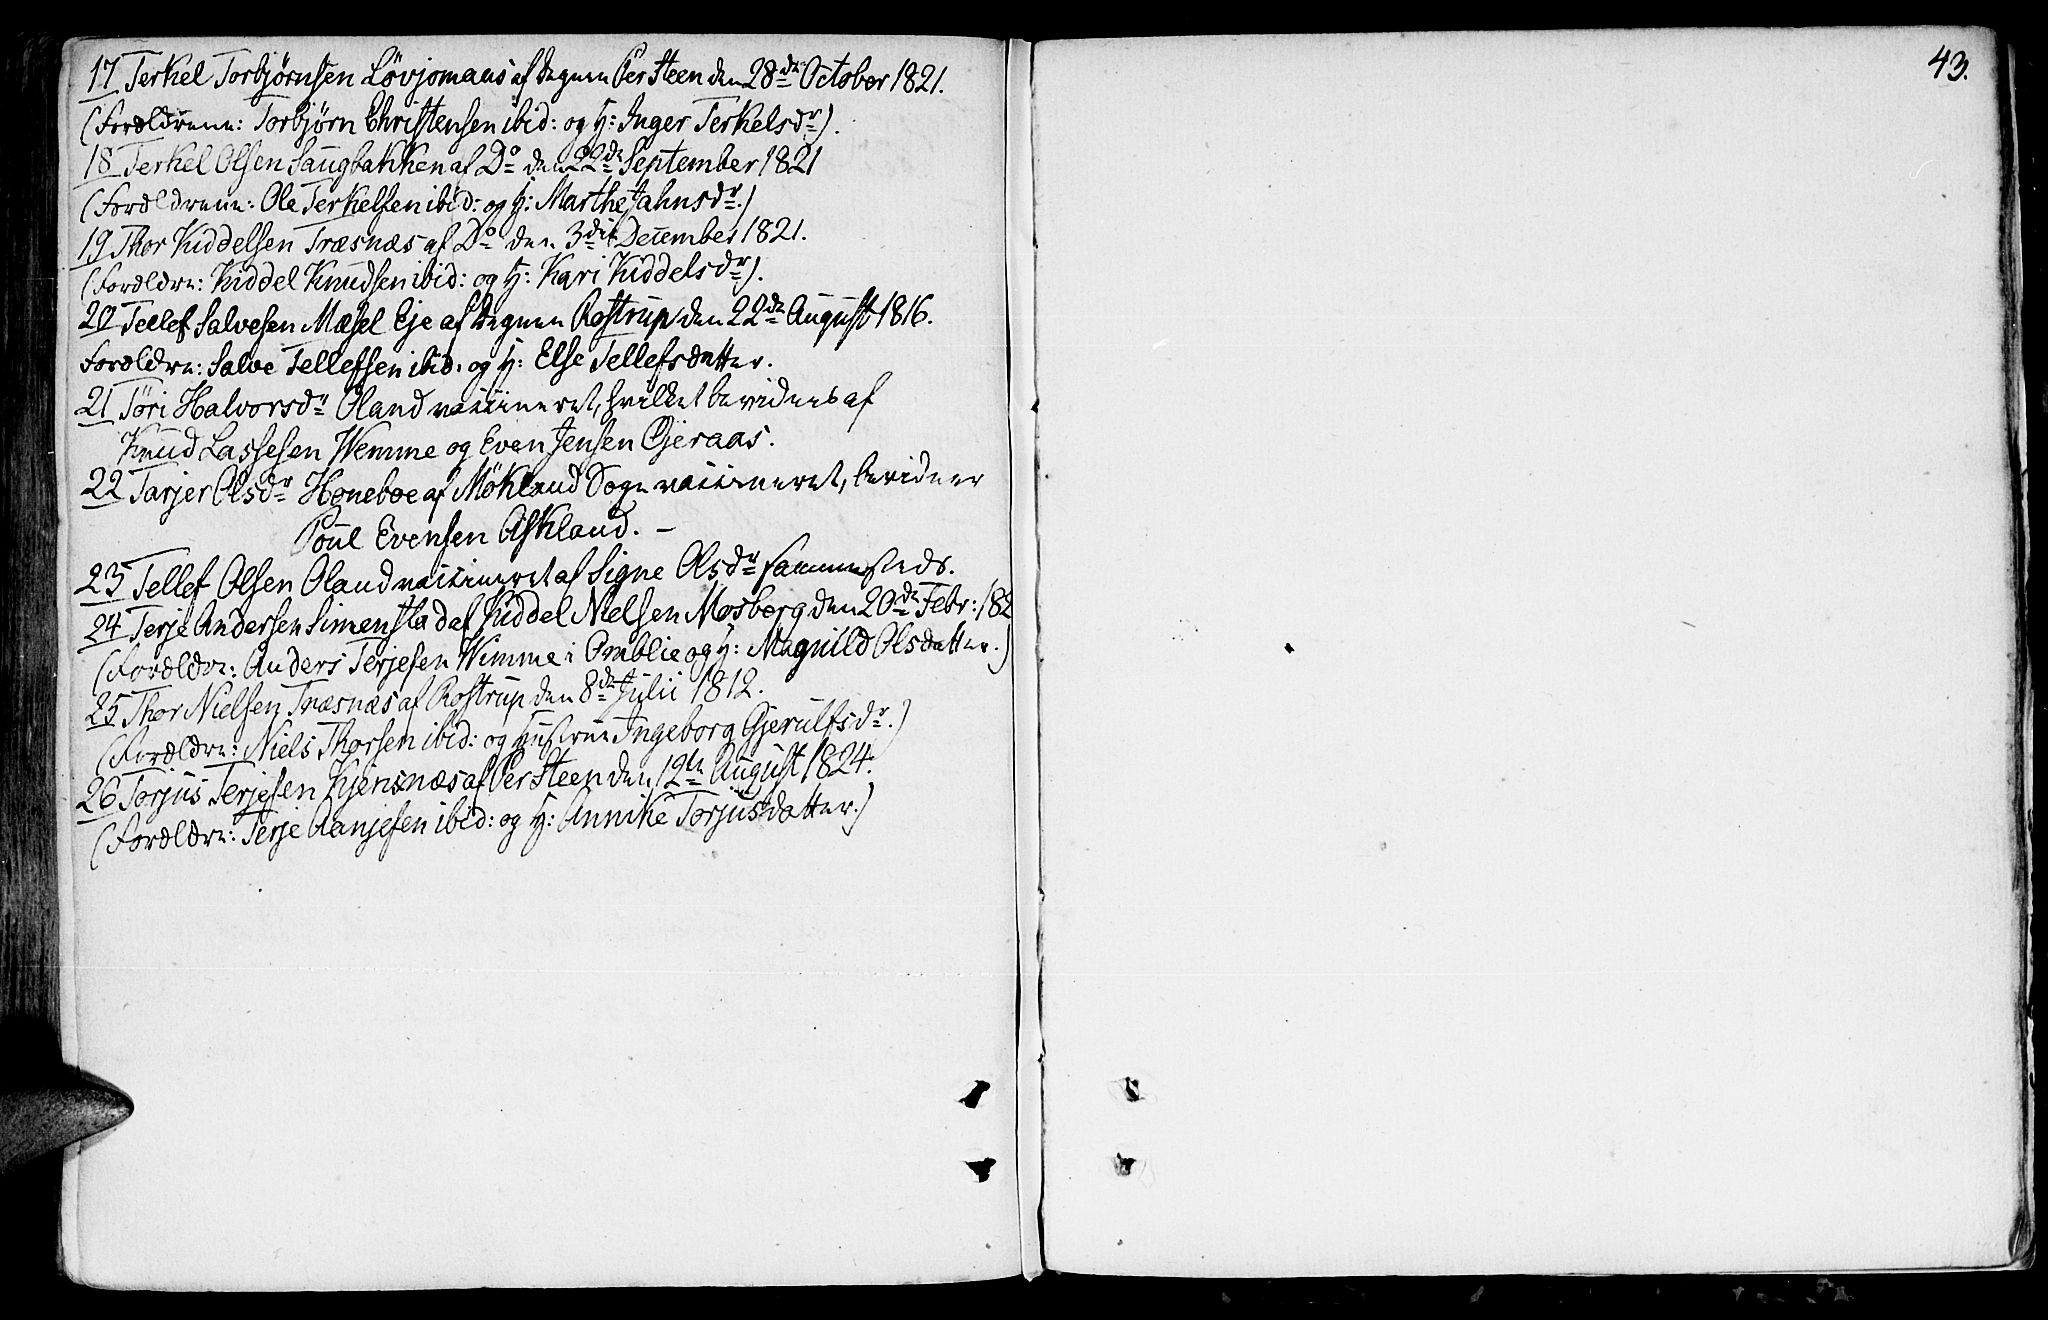 17 Terkel Torbjørnsen Løvjomaas af Degnen Per Steen den 28de October 1821.
(Forældrene: Torbjørn Christensen ibid: og H: Inger Terkelsdr).
18 Terkel Olsen Saugbakken af Do den 22de September 1821
(Forældrene: Ole Terkelsen ibid: og H: Marthe Jahnsdr.)
19 Thor Kiddelsen Træsnæs af Do den 3die December 1821.
(Forældre: Kiddel Knudsen ibid: og H: Kari Kiddelsdr).
20 Tellef Salvesen Mæsel Eje af Degnen Rostrup den 22de August 1816.
Forældre: Salve Tellefsen ibid: og H: Else Tellefsdatter.
21 Töri Halvorsdr Oland vaccineret, hvilket bevidnes af
Knud Lassesen Wemme og Even Jensen Gjeraas.
22 Tarjer Olsdr Høneboe af Mökland Sogn vaccineret, bevidner
Poul Evensen Askland. –
23 Tellef Olsen Oland vaccineret af Signe Olsdr sammesteds.
24 Terje Andersen Simenstad af Kiddel Nielsen Mosberg den 20de Febr: 182
(Forældre: Anders Terjesen Wimme i Omblie og H: Magnild Olsdatter.)
25 Thor Nielsen Træsnæs af Rostrup den 8de Julii 1812.
(Forældre: Niels Thorsen ibid: og Hustrue Ingeborg Gjerulfsdr.)
26 Torjus Terjesen Kjensnæs af Per Steen den 12te August 1824.
(Forældre: Terje Aanjesen ibid: og H: Annike Torjusdatter.)
43.